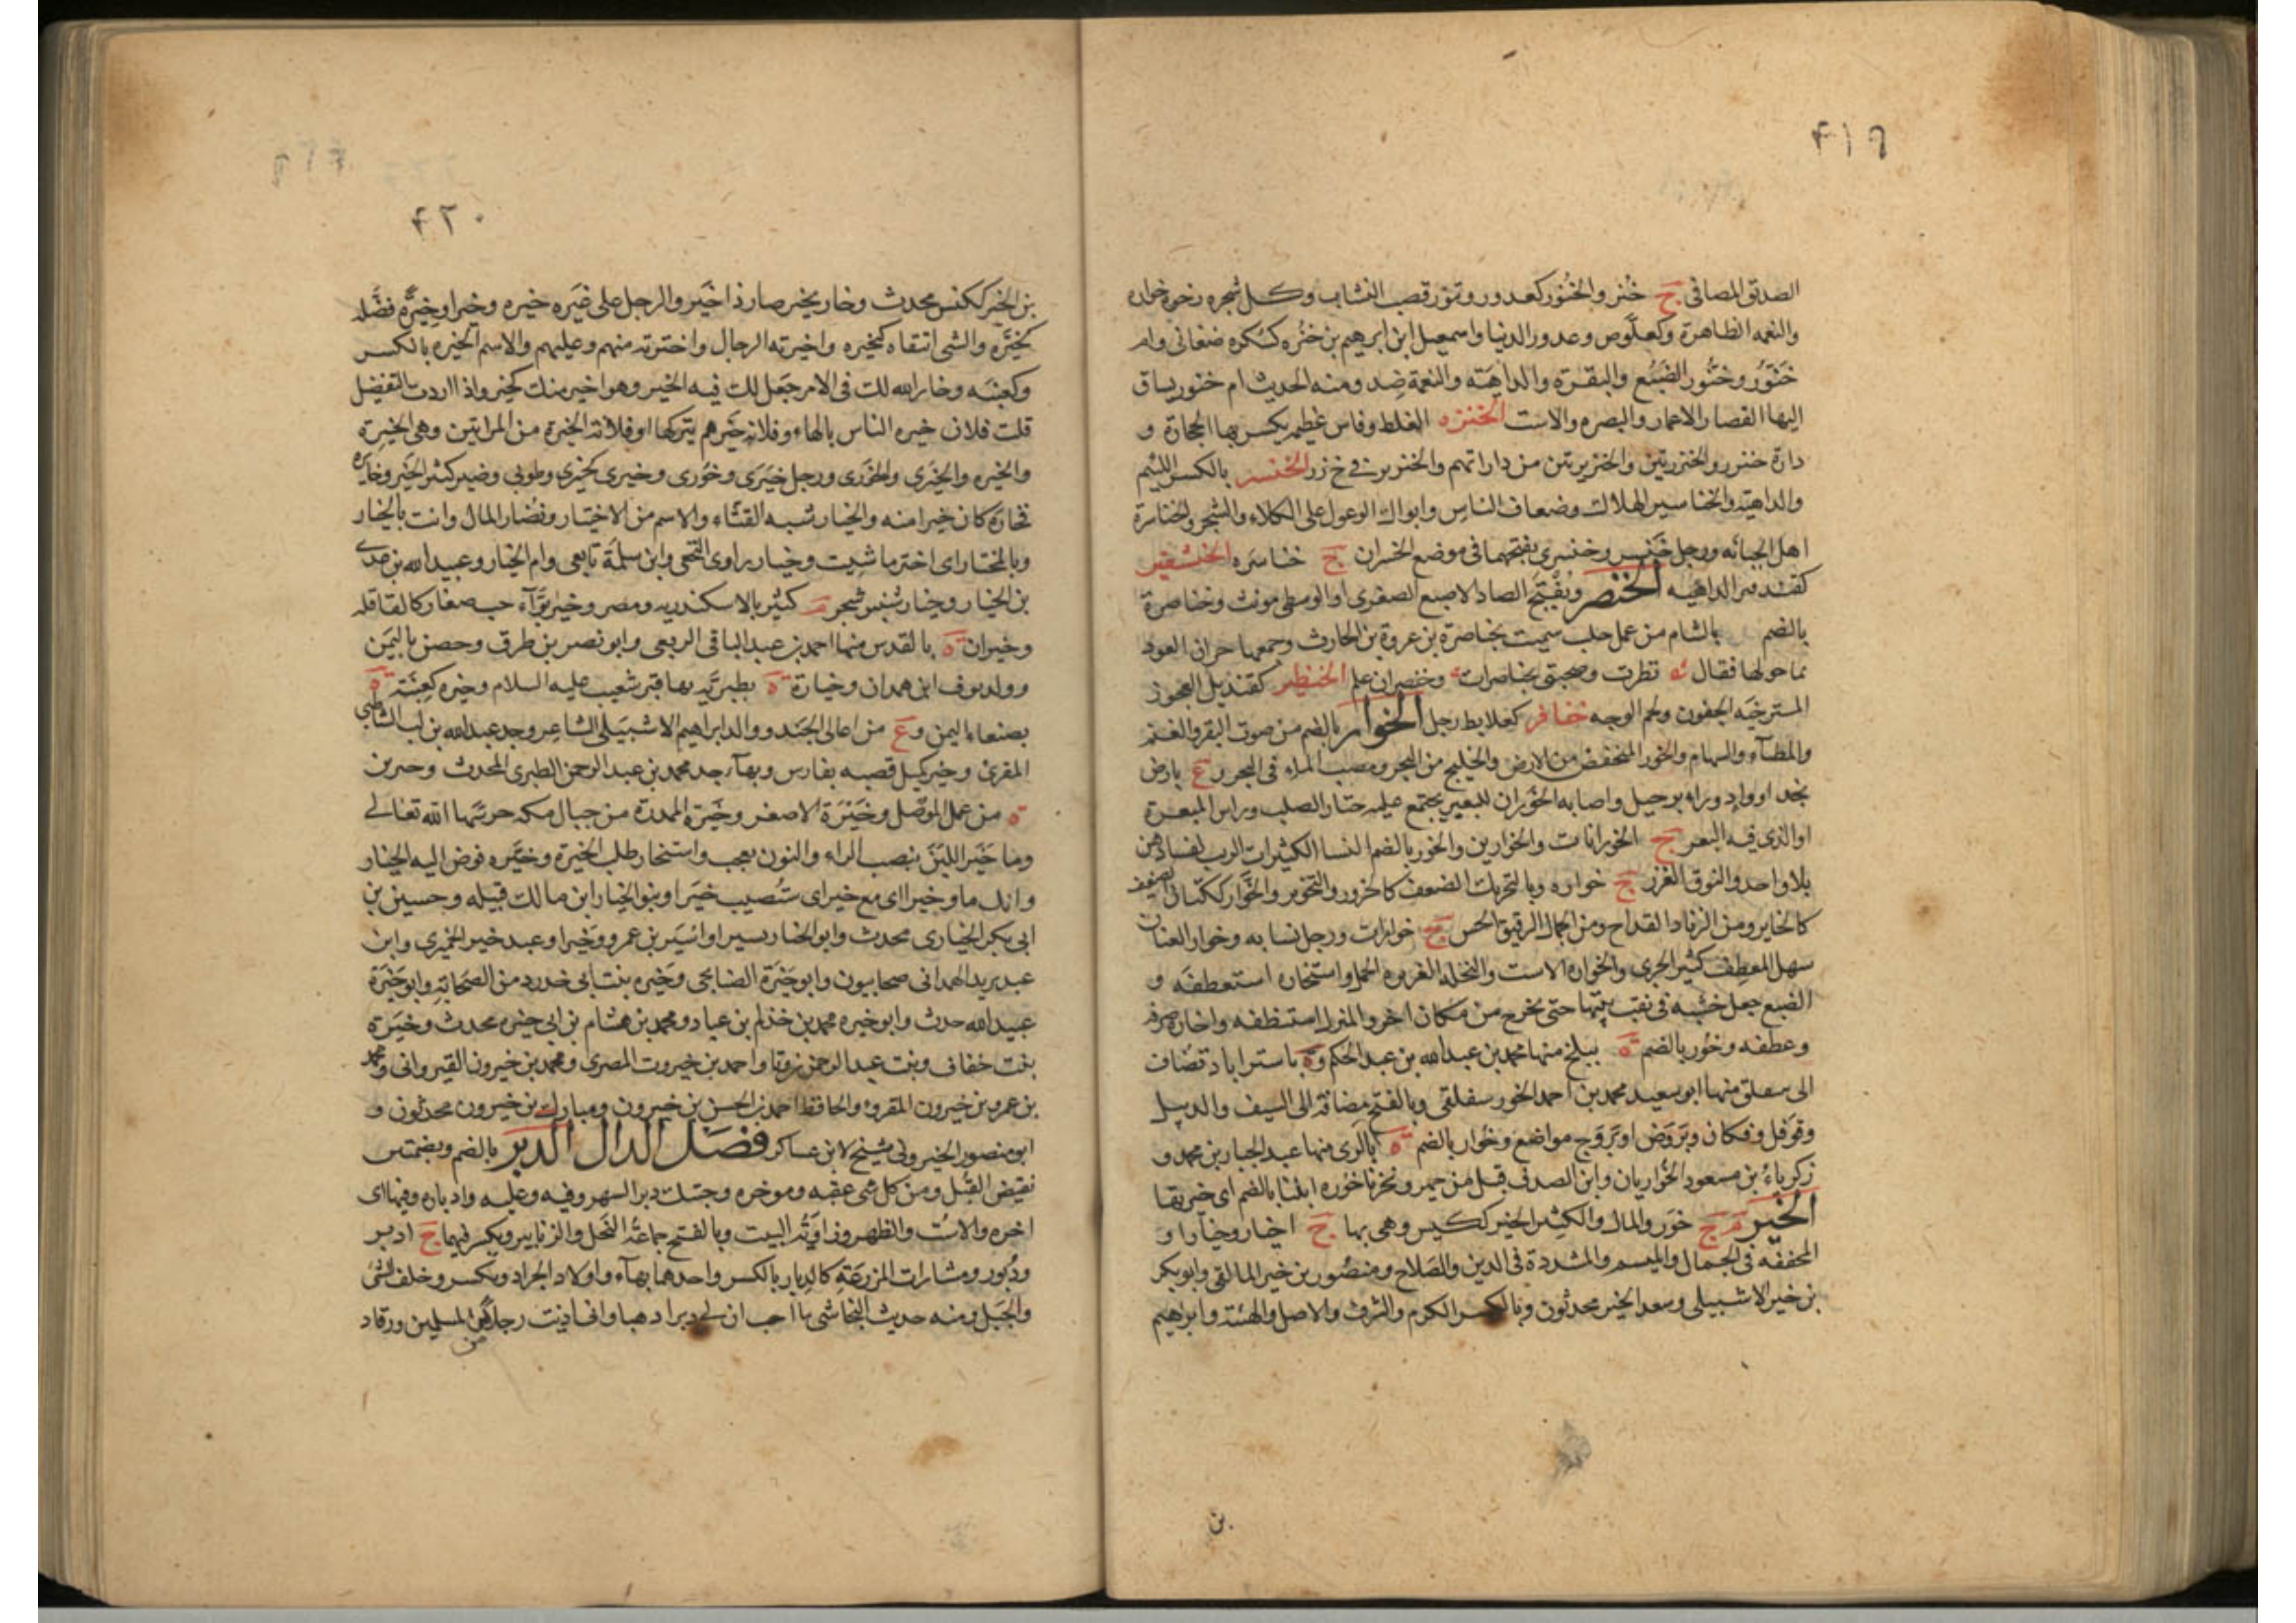 ٤١٩
الصديق المصافى ج خُنُر والخَنُّور كعذور وتنور قصب النشاب وكل شجره رخوه خواره
والنعمه الظاهرة وكعلّوص وعذور الدنيا واسمعيل ابن ابرهيم بن خنُره كسُكره صنعانى وام
خَنَوَّر وخِنَّور الضَبُع والبقرة والداهيَة والنعمة ضِد ومنه الحديث ام خنور يساق
اليها القصار الاعمار والبصره والاست الخنزره الغلظ وفاس غليظه يكسر بها الحجارة و
دارة خنزر والخنزرتين والخنزيرتين من داراتهم والخنزير في خ زر الخنسر بالكسر اللئيم
والداهية والخناسير الهلاك وضعاف الناس وابوال الوعول على الكلاء والشجر والخناسرة
اهل الجبانه ورجل خَنْسر وخنسرى بفتحهما فى موضع الخسران ج خناسَره الخنشفير
كقندفير الداهيه الخنصر وتُفتَح الصاد الاصبع الصغرى او الوسطى مونث وخناصرة
بالضم بالشام من عمل حلب سميت بخناصرة بن عروة بن الحارث وجمعها جران العود
بما حولها فقال نظرت وصحبتى بخناصرات وخنصران علم الخنظير كقنديل العجوز
المسترخيه الجفون ولحم الوجه خنافر كعلابط رجل الخوار بالضم من صوت البقر والغنم
والظباء والسهام والخور المنخفض من الارض والخليج من البحر ومصب الماء فى البحر وع بارض
نجد او واد وراء برجيل واصابه الخوران للبعير يجتمع عليه حتار الصلب وراس المبعرة
او الذى فيه البعر ج الخورانات والخوارين والخور بالضم النسا الكثيرات الريب لفسادهن
بلا واحد والنوق الغزر ج خواره وبالتحريك الضعف كالخرور والتخوير والخَوَّار ككتان الضعيف
كالخاير ومن الزناد القداح ومن الجمال الرقيق الحس ج خوارات ورجل نسابه وخوار العنان
سهل المعطف كثير الجرى والخواره الاست والنخله الغزيره الحمل واستخاره استعطفه و
الضبع جعل خشبه فى نقب بيتها حتى تخرج من مكان اخر والمنزل استنظفه واخاره صرفه
وعطفه وخُور بالضم ة ببلخ منها محمد بن عبدالله بن عبد الحكم وة باستراباد تضاف
الى سفلق منها ابوسعيد محمد بن احمد الخورسفلقى وبالفتح مضافة الى السيف والديبل
وفوفل وفكان وبَرْوَض او بَروَج مواضع وخُوار بالضم ة بالرى منها عبد الجبار بن محمد و
زكرياء بن مسعود الخواريان وابن الصدف قيل من حمير ونحرنا خوره ابلنا بالضم اى خيرتها
الخير م ج خُيُور والمال والكثير الخير ككيس وهى بها ج اخيار وخيار او
المخففه فى الجمال والميسم والمشددة فى الدين والصلاح ومنصُور بن خير المالقى وابوبكر
بن خير الاشبيلى وسعد الخير محدثون وبالكسر الكرم والشرف والاصل والهيئة وابراهيم
بن
٤٢٠
بن الخير ككيس محدث وخار يخير صار ذا خَير والرجل على غيَره خيره وخيرا وخِيرةً فضَّله
كخيَّره والشى انتقاه كتخيره واخيرته الرجال واخترته منهم وعليهم والاسم الخيره بالكسر
وكعِنَبه وخار الله لك فى الامر جَعل لك فيه الخير وهو اخير منك كخير واذا اردت التفضيل
قلت فلان خيره الناس بالهاء وفلانه خَيرهم بتركها او فلانة الخيرة من المراتين وهى الخيرة
والخيره والخيرى والخورى ورجل خيَرى وخَورى وخيرى كحيرى وطوبى وضير كثير الخير وخايره
فخارَه كان خيرا منه والخيار شبه القثاء والاسم من الاختيار ونُضار المال وانت بالخيار
وبالمختار اى اختر ما شيت وخيار راوى النخعى وابن سلَمَة تابعى وام الخيار وعبيد الله بن عدى
بن الخيار وخيار شنبر شجر م كثير بالاسكندريه ومصر وخير بَوَّآء حب صغار كالقاقله
وخيران ة بالقدس منها احمد بن عبد الباقى الربعى وابو نصر بن طرق وحصن باليمَن
وولد نوف ابن همدان وخيارة ة بطبريّه بها قبر شعيب عليه السلام وخيره كعِنَبَة ة
بصنعاء اليمن وع من اعالى الجَند ووالد ابراهيم الاشبيلى الشاعر وجد عبدالله بن لب الشاطبى
المقرئ وخير كميل قصبه بفارس وبهآء جد محمد بن عبد الرحمن الطبرى المحدث وخيرين
ة من عمل الموصل وخَيْرَة الاصفر وخَيرَة الممدرة من جبال مكه حرسَها الله تعالى
وما خَيَر اللبَنَ بنصب الراء والنون تعجب واستخار طلب الخيرة وخيَّره فوض اليه الخيار
وانك ما وخيرا اى مع خير اى ستُصيب خيَرا وبنو الخيار ابن مالك قبيله وحسين بن
ابى بكر الخيارى محدث وابو الخيار يسير او اسَير بن عمرو وخَير او عبد خير الحميرى وابن
عبد يريد الهمدانى صحابيون وابو خَيْرَة الصنابحى وخَيره بنت ابى حدرد من الصَحابة وابو خَيْرَة
عبيدالله حدث وابو خيره محمد بن حذلم بن عباد ومحمد بن هشام بن ابى خيره محدث وخَيرة
بنت خفاف وبنت عبد الرحمن روتا واحمد بن خيرون المصرى ومحمد بن خيرون القيروانى ومحمد
بن عمرو بن خيرون المقرو والحافظ احمد بن الحسن بن خيرون ومبارك بن خيرون محدثون و
ابو منصور الخيرونى شيخ لابن عساكر فصَل الدال الدبر بالضم وبضمتين
نقيض القبُل ومن كل شى عقبه وموخره وجئتك دبر الشهر وفيه وعليه وادباره وفيها اى
اخره والاسْت والظهر وزاوَيَة البيت وبالفتح جماعَة النَحل والزنابير ويكسر فيهما ج ادبر
ودُبُور ومشارات المزرعَة كالدِبار بالكسر واحدها بهآء واولاد الجراد ويكسر وخلف الشى
والجَبل ومنه حديث النجاشى ما احب ان لى دبرا ذهبا وانى اذيت رجلا من المسلمين ورقاد